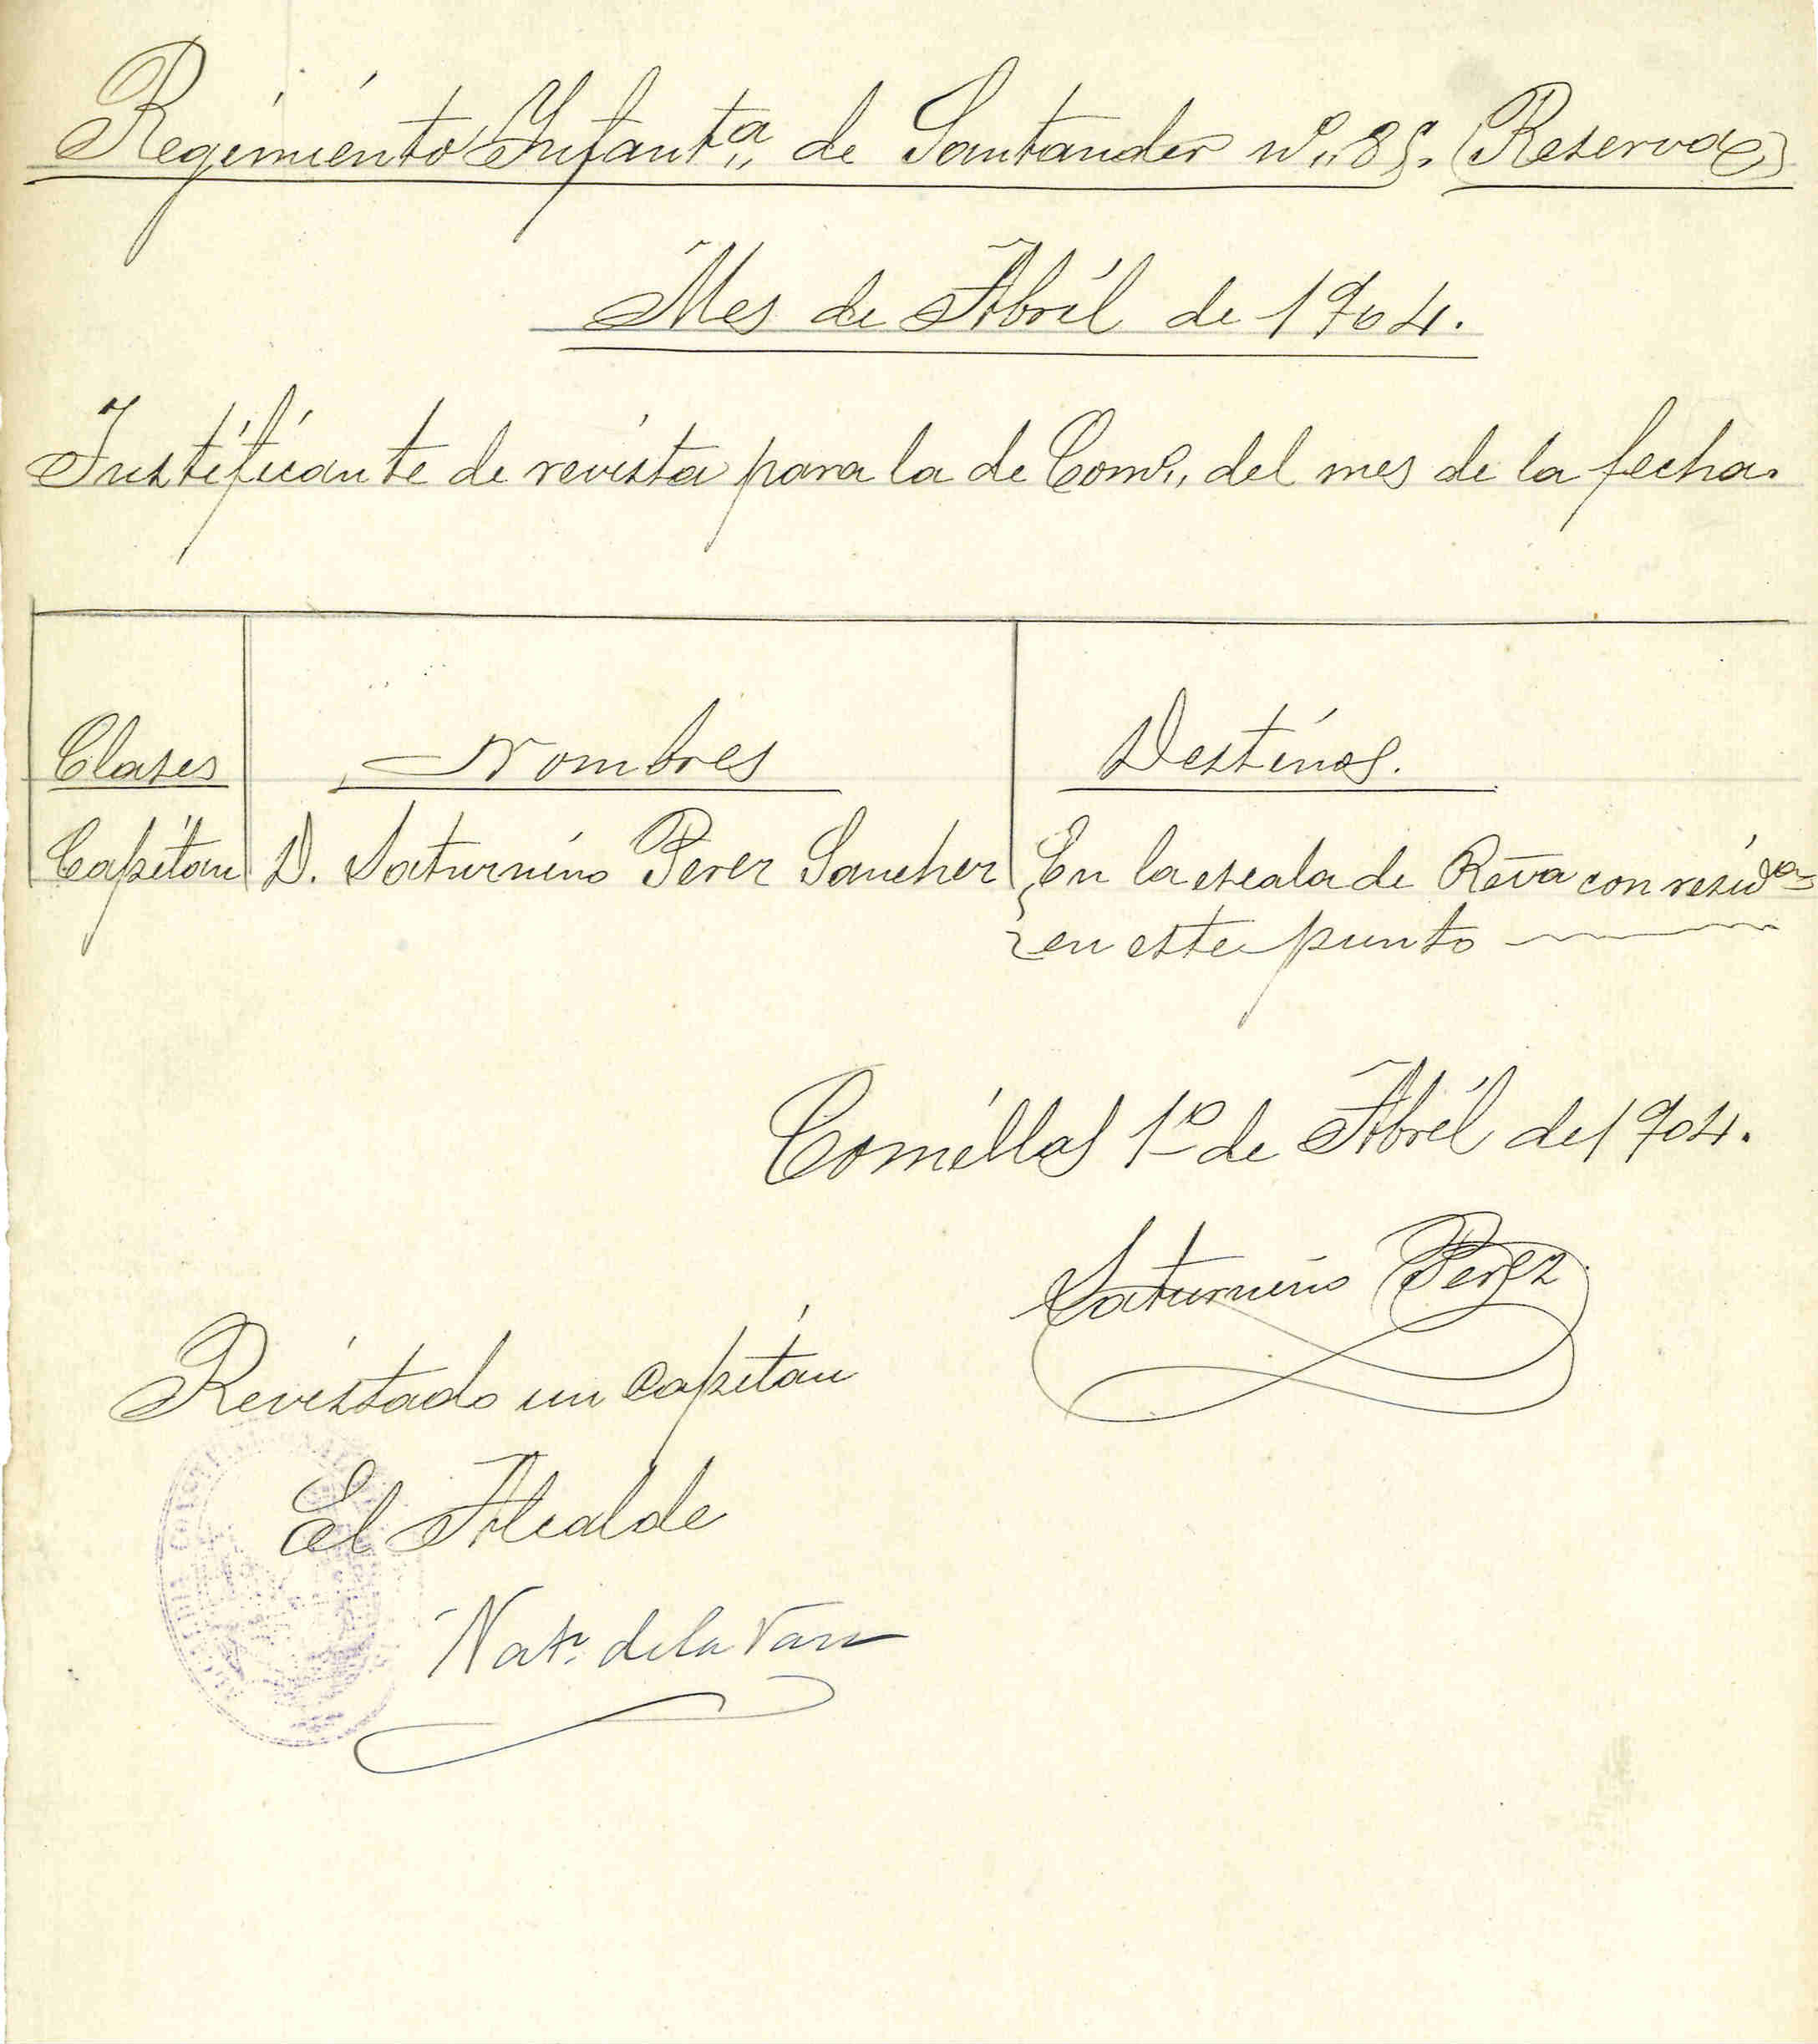 Regimiento Infantª de Santander nº 85. (Reserva)
Mes de Abril de 1904.
Justificante de revista para la de Comº, del mes de la fecha.
Clases Nombres Destinos.
Capitan D. Saturnino Perez Sanchez En la escala de Rēva con residª
en este punto
Comillas 1º de Abril de 1904.
Saturnino Perez
Revistado un capitan
El Alcalde
Natº. de la